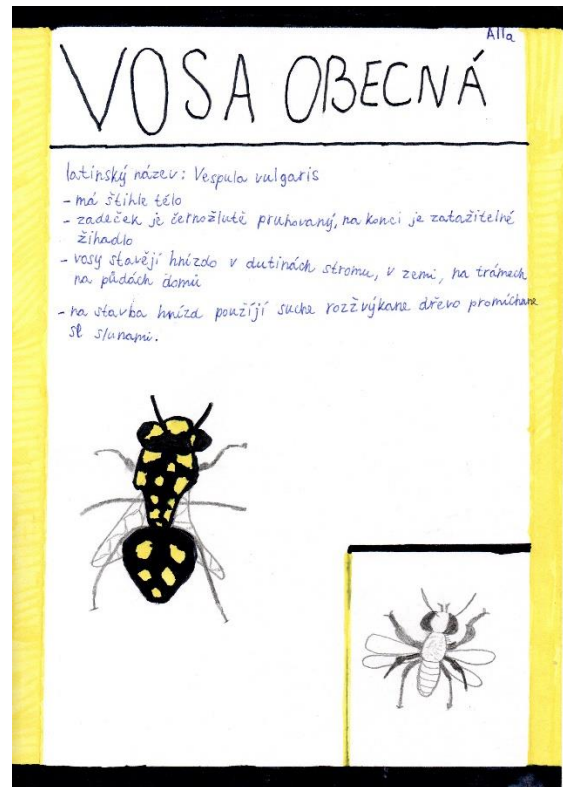 Alla
VOSA OBECNÁ
latinský název: Vespula vulgaris
- má štíhle tělo
- zadeček je černožlutě pruhovaný, na konci je zatažitelné
žihadlo
- vosy stavějí hnízdo v dutinách stromu, v zemi, na trámech
na půdách domů
- na stavba hnízd použijí suche rozžvýkane dřevo promíchane
se slunami.